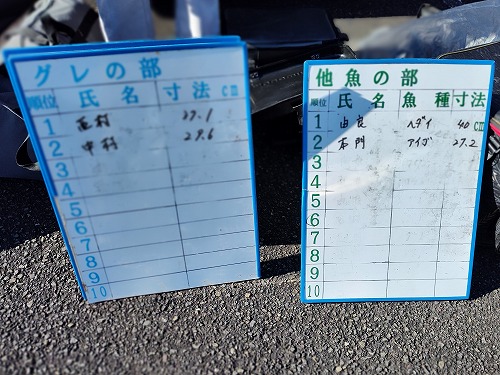 グレの部
順位 氏名 寸法cm
1 西村
2 中村 29.6
3
4
5
6
7
8
9
10
他魚の部
順位 氏名 魚種 寸法
1 由良 ヘダイ 40 cm
2 本門 アイゴ 27.2
3
4
5
6
7
8
9
10